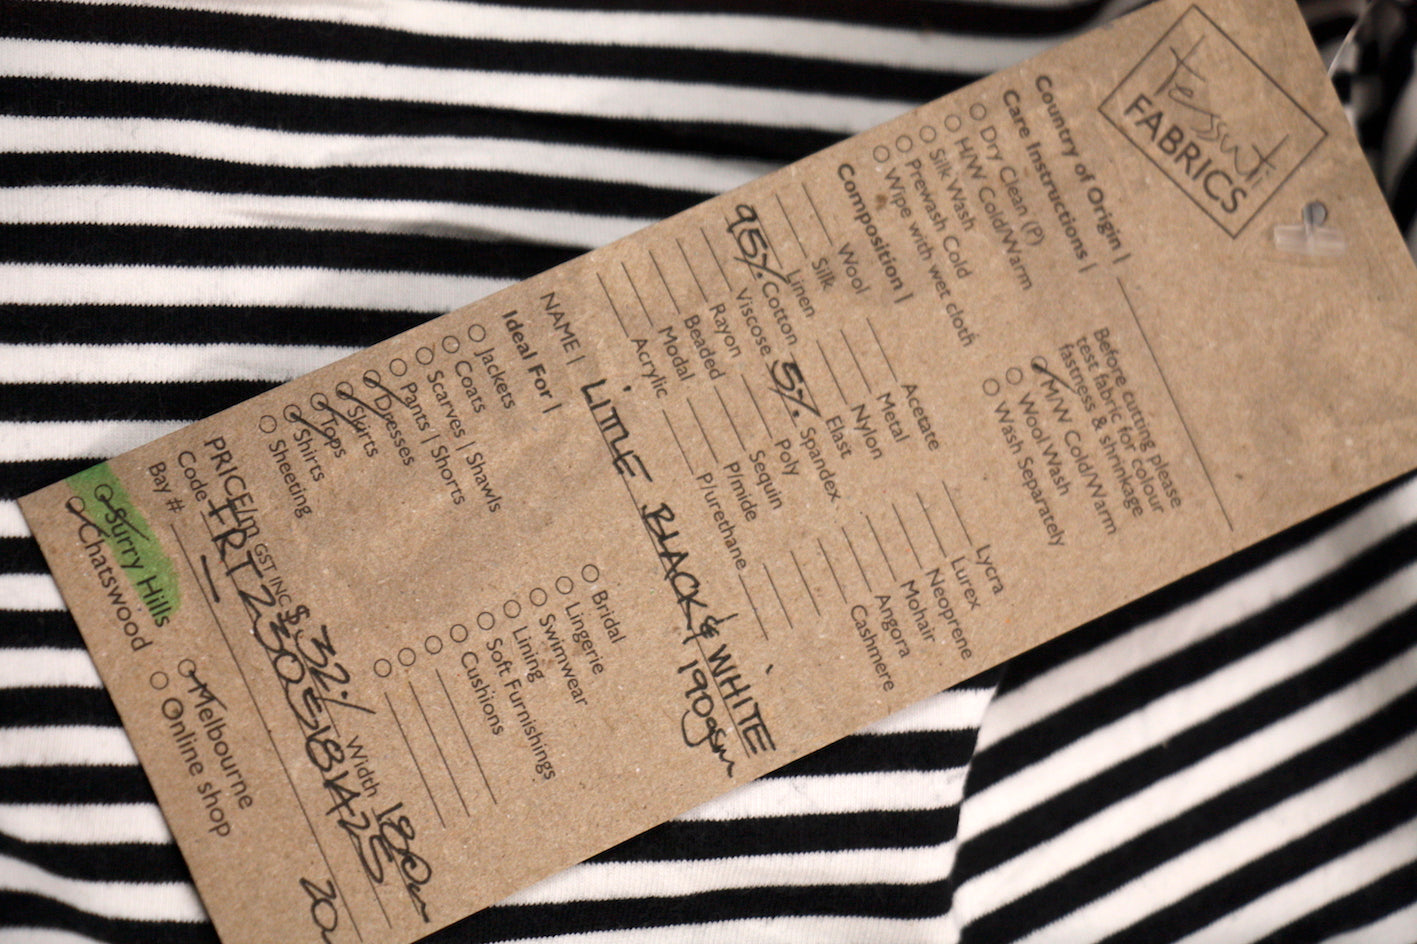 tessuti
FABRICS
Country of Origin |
Care Instructions |
Dry Clean (P)
H/W Cold/Warm
Silk Wash
Prewash Cold
Wipe with wet cloth
Before cutting please
test fabric for colour
fastness & shrinkage
M/W Cold/Warm
Wool Wash
Wash Separately
Composition |
Wool
Silk
Linen
95% Cotton
Viscose
Rayon
Beaded
Modal
Acrylic
Acetate
Metal
Nylon
Elast
5% Spandex
Poly
Sequin
P/mide
P/urethane
Lycra
Lurex
Neoprene
Mohair
Angora
Cashmere
NAME | LITTLE BLACK & WHITE
190gsm
Ideal For |
Jackets
Coats
Scarves | Shawls
Pants | Shorts
Dresses
Skirts
Tops
Shirts
Sheeting
Bridal
Lingerie
Swimwear
Lining
Soft Furnishings
Cushions
PRICE/m GST INC $ 32 Width 180cm
Code
Bay # 20
Surry Hills
Chatswood
Melbourne
Online shop